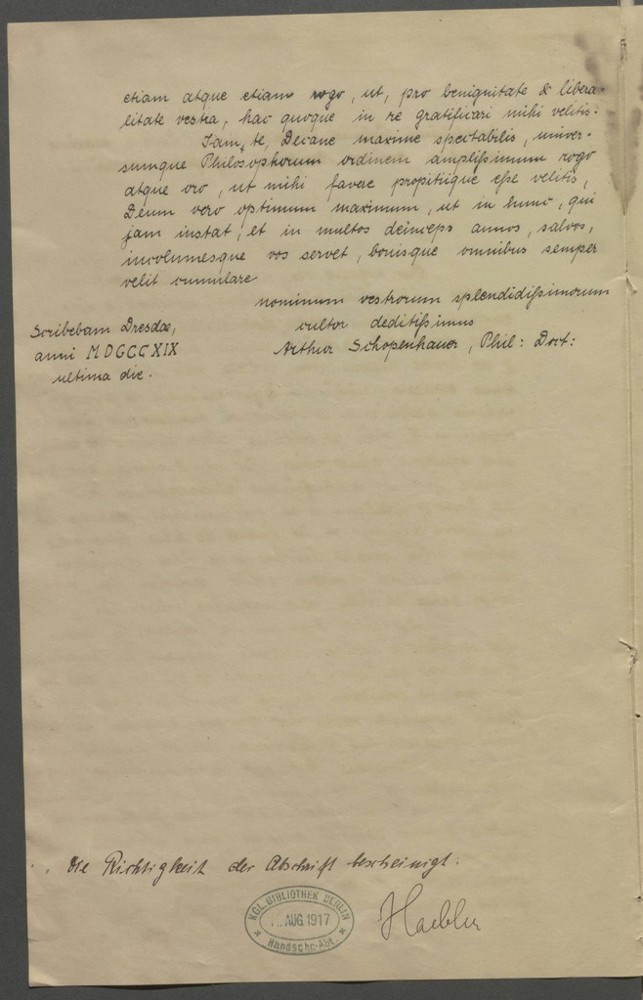 etiam atque etiam rogo, ut, pro benignitate & libera-
litate vestra, hac quoque in re gratificari mihi velitis.
Jam, te, Decane maxime spectabilis, univer-
sumque Philosophorum ordinem amplißimum rogo
atque oro, ut mihi favere propitiique eße velitis,
Deum vero optimum maximum, ut in hunc, qui
jam instat, et in multos deinceps annos, salvos,
incolumesque vos servet, bonisque omnibus semper
velit cumulare
nominum vestrorum splendidißimorum
cultor deditißimus
Arthur Schopenhauer, Phil: Doct:
Scribebam Dresdae,
anni MDCCCXIX
ultima die.
Die Richtigkeit der Abschrift bescheinigt:
KGL. BIBLIOTHEK BERLIN
AUG 1917
Handschr.-Abt.
Haebler